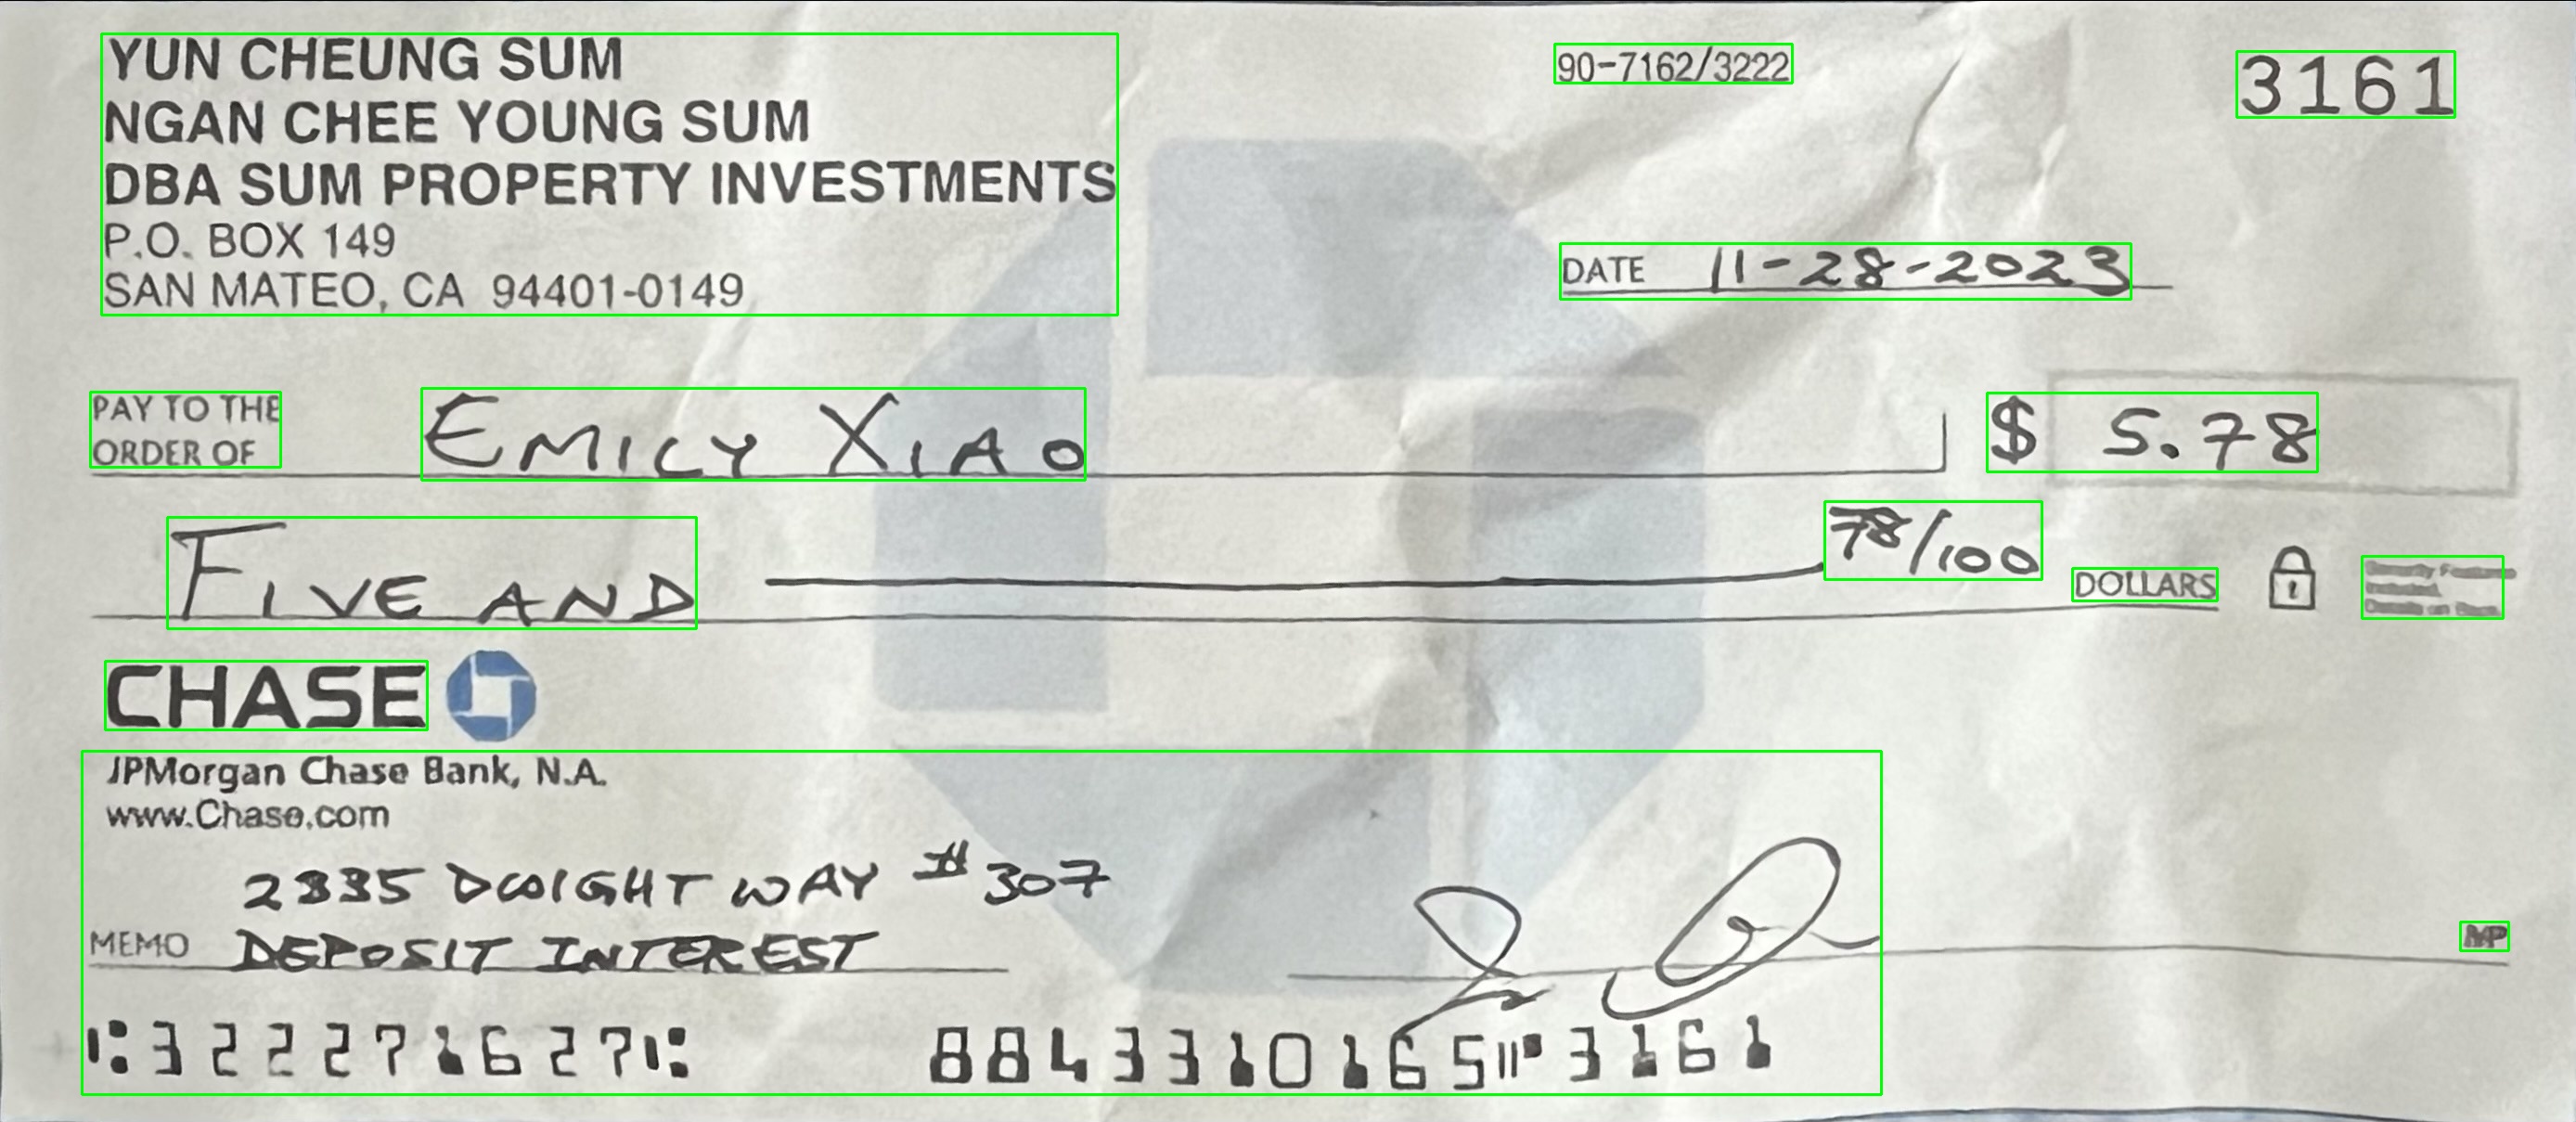 YUN CHEUNG SUM
NGAN CHEE YOUNG SUM
DBA SUM PROPERTY INVESTMENTS
P.O. BOX 149
SAN MATEO, CA 94401-0149
90-7162/3222
3161
DATE 11-28-2023
PAY TO THE
ORDER OF EMILY XIAO $ 5.78
FIVE AND 78/100 DOLLARS
Security Features
Included.
Details on Back.
CHASE
JPMorgan Chase Bank, N.A.
www.Chase.com
2335 DWIGHT WAY # 307
MEMO DEPOSIT INTEREST
MP
⑆322271627⑆ 8843310165⑈3161